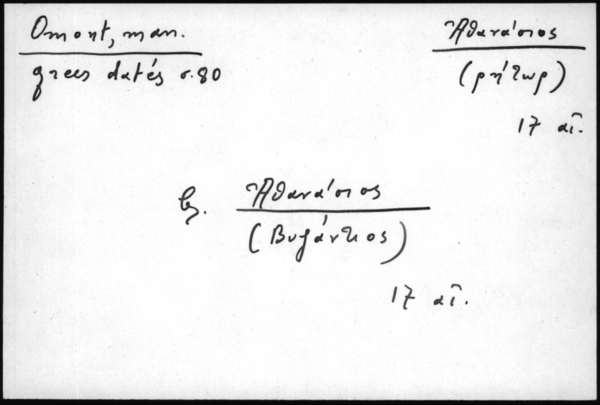 Omont, man.
grecs datés σ. 80
Ἀθανάσιος
(ρήτωρ)
17 αἰ.
βλ. Ἀθανάσιος
(Βυζάντιος)
17 αἰ.